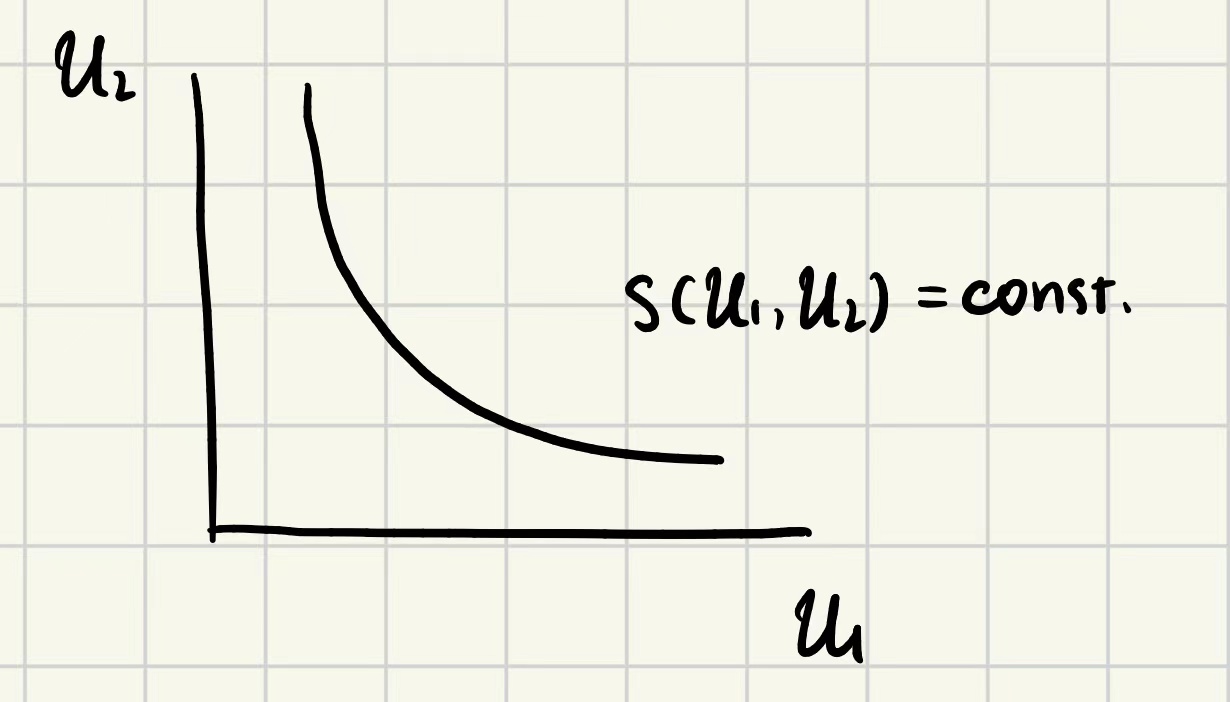 U₂
S(U₁, U₂) = const.
U₁